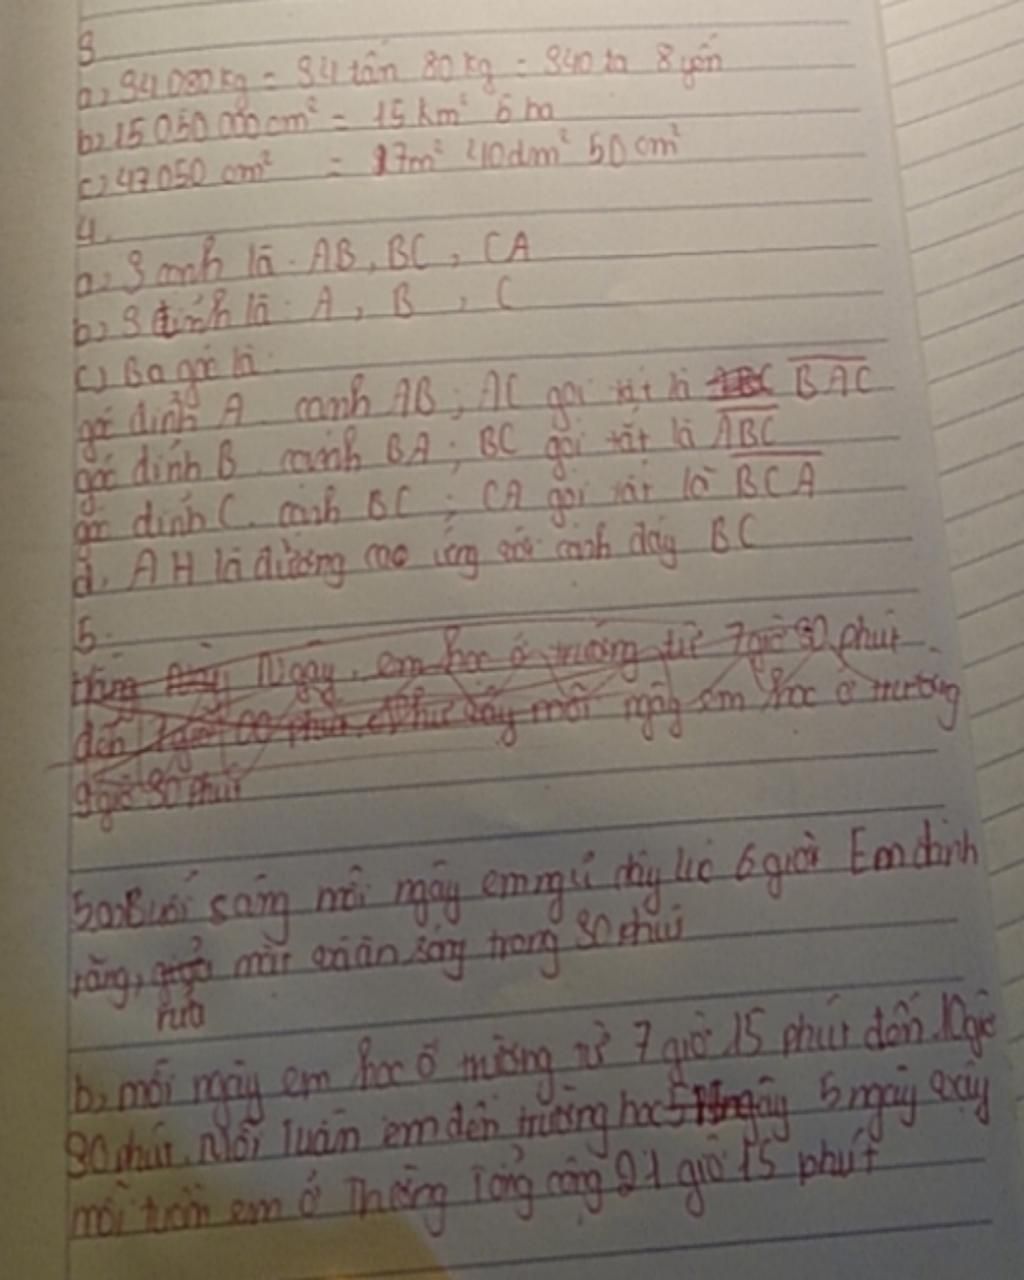 3
a, 34 080 kg = 34 tấn 80 kg = 340 tạ 8 yến
b, 15 050 000 cm² = 15 km² 5 ha
c, 47 050 cm² = 17m² 40dm² 50 cm²
4.
a, 3 cạnh là: AB, BC, CA
b, 3 đỉnh là: A, B, C
c) Ba góc là
góc đỉnh A cạnh AB; AC gọi tắt là BAC
góc đỉnh B cạnh BA; BC gọi tắt là ABC
góc đỉnh C. cạnh BC; CA gọi tắt là BCA
d, AH là đường cao ứng với cạnh đáy BC
5.
Ngày, em học ở trường từ 7 giờ 30 phút
đến mỗi ngày em học ở trường
giờ 30 phút
5a, Buổi sáng mỗi ngày em ngủ dậy lúc 6 giờ Em đánh
răng, mặt ăn sáng trong 30 phút
rửa
b, mỗi ngày em học ở trường từ 7 giờ 15 phút đến 10 giờ
30 phút. Mỗi tuần em đến trường học 5 ngày
mỗi tuần em ở Trường Tổng cộng 21 giờ 15 phút